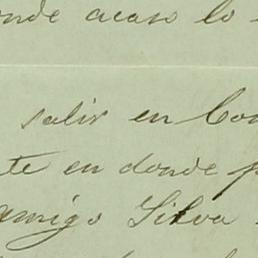 onde acaso lo
salir en Con
te en donde p
amigo Silva